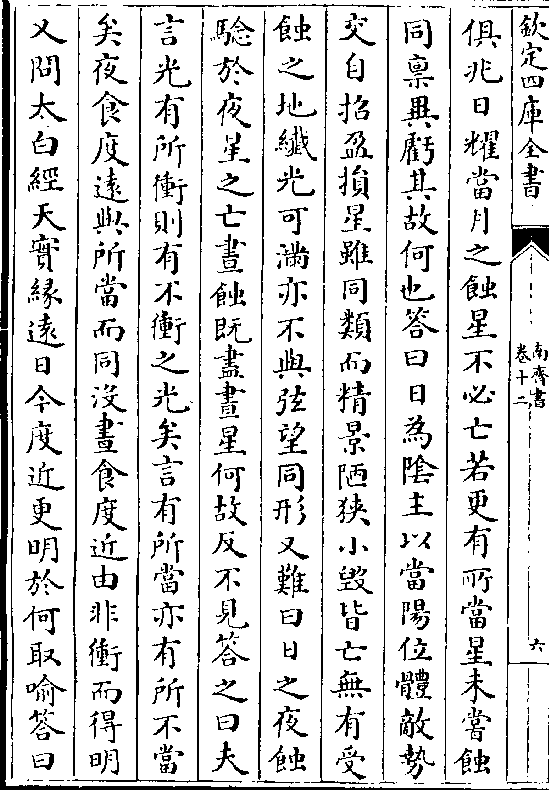 欽定四庫全書
南齊書
卷十二
六
俱兆日耀當月之蝕星不必亡若更有所當星未嘗蝕
同稟異虧其故何也答曰日為陰主以當陽位體敵勢
交自招盈損星雖同類而精景陋狹小毀皆亡無有受
蝕之地纖光可滿亦不與弦望同形又難曰日之夜蝕
驗於夜星之亡晝蝕既盡晝星何故反不見答之曰夫
言光有所衝則有不衝之光矣言有所當亦有所不當
矣夜食度遠與所當而同沒晝食度近由非衝而得明
又問太白經天實緣遠日今度近更明於何取喻答曰